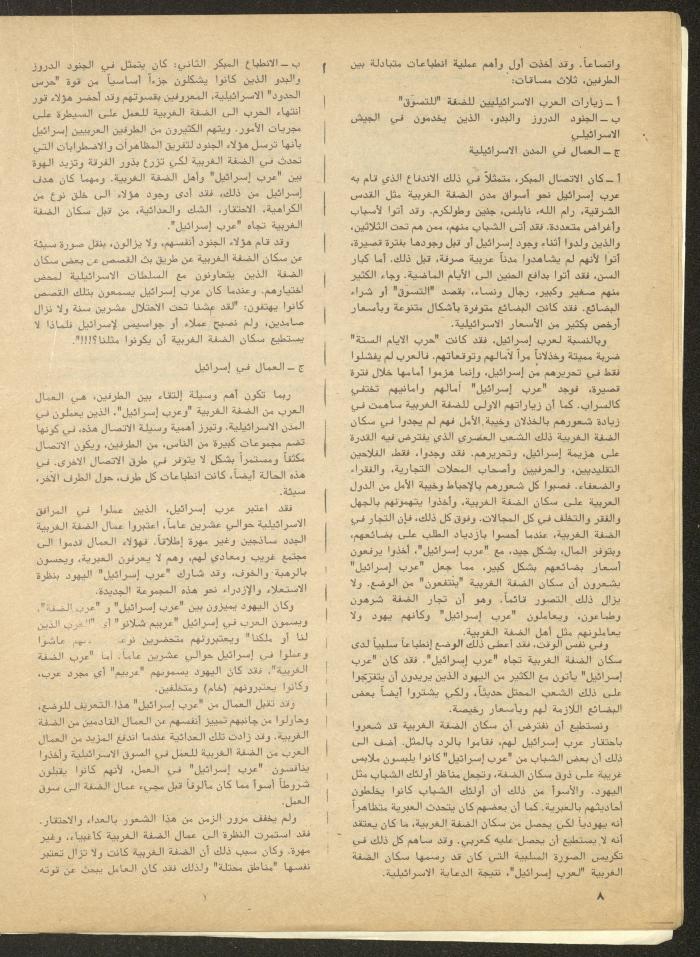 واتساعاً. وقد أخذت أول وأهم عملية انطباعات متبادلة بين
الطرفين، ثلاث مساقات:
أ ــ زيارات العرب الاسرائيليين للضفة "للتسوّق"
ب ــ الجنود الدروز والبدو، الذين يخدمون في الجيش
الاسرائيلي
ج ــ العمال في المدن الاسرائيلية
أ ــ كان الاتصال المبكر، متمثلاً في ذلك الاندفاع الذي قام به
عرب إسرائيل نحو أسواق مدن الضفة الغربية مثل القدس
الشرقية، رام الله، نابلس، جنين وطولكرم. وقد أتوا لأسباب
وأغراض متعددة. فقد أتى الشباب منهم، ممن هم تحت الثلاثين،
والذين ولدوا أثناء وجود إسرائيل أو قبل وجودها بفترة قصيرة،
أتوا لأنهم لم يشاهدوا مدناً عربية صرفة، قبل ذلك. أما كبار
السن، فقد أتوا بدافع الحنين الى الأيام الماضية. وجاء الكثير
منهم صغير وكبير، رجال ونساء، بقصد "التسوّق" أو شراء
البضائع. فقد كانت البضائع متوفرة بأشكال متنوعة وبأسعار
أرخص بكثير من الأسعار الاسرائيلية.
وبالنسبة لعرب إسرائيل، فقد كانت "حرب الايام الستة"
ضربة مميتة وخذلاناً مراً لآمالهم وتوقعاتهم. فالعرب لم يفشلوا
فقط في تحريرهم من إسرائيل، وإنما هزموا أمامها خلال فترة
قصيرة، فوجد "عرب إسرائيل" آمالهم وامانيهم تختفي
كالسراب. كما أن زياراتهم الاولى للضفة الغربية ساهمت في
زيادة شعورهم بالخذلان وخيبة الأمل فهم لم يجدوا في سكان
الضفة الغربية ذلك الشعب العصري الذي يفترض فيه القدرة
على هزيمة إسرائيل، وتحريرهم. فقد وجدوا، فقط الفلاحين
التقليديين، والحرفيين وأصحاب المحلات التجارية، والفقراء
والضعفاء. فصبوا كل شعورهم بالإحباط وخيبة الأمل من الدول
العربية على سكان الضفة الغربية، وأخذوا يتهمونهم بالجهل
والفقر والتخلف في كل المجالات. وفوق كل ذلك، فإن التجار في
الضفة الغربية، عندما أحسوا بازدياد الطلب على بضائعهم،
وبتوفر المال، بشكل جيد، مع "عرب إسرائيل"، أخذوا يرفعون
أسعار بضائعهم بشكل كبير، مما جعل "عرب إسرائيل"
يشعرون أن سكان الضفة الغربية "ينتفعون" من الوضع. ولا
يزال ذلك التصور قائماً. وهو أن تجار الضفة شرهون
وطماعون، ويعاملون "عرب إسرائيل" وكأنهم يهود ولا
يعاملونهم مثل أهل الضفة الغربية.
وفي نفس الوقت، فقد اعطى ذلك الوضع إنطباعاً سلبياً لدى
سكان الضفة الغربية تجاه "عرب إسرائيل". فقد كان "عرب
إسرائيل" يأتون مع الكثير من اليهود الذين يريدون أن يتفرجوا
على ذلك الشعب المحتل حديثاً، ولكي يشتروا أيضاً بعض
البضائع اللازمة لهم وبأسعار رخيصة.
ونستطيع أن نفترض أن سكان الضفة الغربية قد شعروا
باحتقار عرب إسرائيل لهم، فقاموا بالرد بالمثل. أضف الى
ذلك أن بعض الشباب من "عرب إسرائيل" كانوا يلبسون ملابس
غريبة على ذوق سكان الضفة، وتجعل مناظر أولئك الشباب مثل
اليهود. والأسوأ من ذلك أن أولئك الشباب كانوا يخلطون
أحاديثهم بالعبرية. كما أن بعضهم كان يتحدث العبرية متظاهراً
أنه يهودياً لكي يحصل من سكان الضفة الغربية، ما كان يعتقد
أنه لا يستطيع أن يحصل عليه كعربي. وقد ساهم كل ذلك في
تكريس الصورة السلبية التي كان قد رسمها سكان الضفة
الغربية "لعرب إسرائيل"، نتيجة الدعاية الاسرائيلية.
ب ــ الانطباع المبكر الثاني: كان يتمثل في الجنود الدروز
والبدو الذين كانوا يشكلون جزءاً أساسياً من قوة "حرس
الحدود" الاسرائيلية، المعروفين بقسوتهم وقد أحضر هؤلاء فور
انتهاء الحرب الى الضفة الغربية للعمل على السيطرة على
مجريات الأمور. ويتهم الكثيرون من الطرفين العربيين إسرائيل
بأنها ترسل هؤلاء الجنود لتفريق المظاهرات والاضطرابات التي
تحدث في الضفة الغربية لكي تزرع بذور الفرقة وتزيد الهوة
بين "عرب إسرائيل" وأهل الضفة الغربية. ومهما كان هدف
إسرائيل من ذلك، فقد أدى وجود هؤلاء الى خلق نوع من
الكراهية، الاحتقار، الشك والعدائية، من قبل سكان الضفة
الغربية تجاه "عرب إسرائيل".
وقد قام هؤلاء الجنود أنفسهم، ولا يزالون، بنقل صورة سيئة
عن سكان الضفة الغربية عن طريق بث القصص عن بعض سكان
الضفة الذين يتعاونون مع السلطات الاسرائيلية لمحض
اختيارهم. وعندما كان عرب إسرائيل يسمعون بتلك القصص
كانوا يهتفون: "لقد عشنا تحت الاحتلال عشرين سنة ولا نزال
صامدين، ولم نصبح عملاء أو جواسيس لإسرائيل فلماذا لا
يستطيع سكان الضفة الغربية أن يكونوا مثلنا؟!!!".
ج ــ العمال في إسرائيل
ربما تكون أهم وسيلة إلتقاء بين الطرفين، هي العمال
العرب من الضفة الغربية "وعرب إسرائيل"، الذين يعملون في
المدن الاسرائيلية. وتبرز أهمية وسيلة الاتصال هذه، في كونها
تضم مجموعات كبيرة من الناس، من الطرفين، ويكون الاتصال
مكثفاً ومستمراً بشكل لا يتوفر في طرق الاتصال الاخرى. في
هذه الحالة أيضاً، كانت انطباعات كل طرف، حول الطرف الآخر،
سيئة.
فقد اعتبر عرب إسرائيل، الذين عملوا في المرافق
الاسرائيلية حوالي عشرين عاماً، اعتبروا عمال الضفة الغربية
الجدد ساذجين وغير مهرة إطلاقاً. فهؤلاء العمال قدموا الى
مجتمع غريب ومعادي لهم، وهم لا يعرفون العبرية، ويحسون
بالرهبة والخوف، وقد شارك "عرب إسرائيل" اليهود بنظرة
الاستعلاء والإزدراء نحو هذه المجموعة الجديدة.
وكان اليهود يميزون بين "عرب إسرائيل" و "عرب الضفة".
ويسمون العرب في إسرائيل "عربيم شلانو" أي "العرب الذين
لنا أو ملكنا" ويعتبرونهم متحضرين نوعاً عاشوا
وعملوا في إسرائيل حوالي عشرين عاماً. أما "عرب الضفة
الغربية"، فقد كان اليهود يسمونهم "عربيم" أي مجرد عرب،
وكانوا يعتبرونهم (خام) ومتخلفين.
وقد تقبل العمال من "عرب إسرائيل" هذا التعريف للوضع،
وحاولوا من جانبهم تمييز أنفسهم عن العمال القادمين من الضفة
الغربية. وقد زادت تلك العدائية عندما اندفع المزيد من العمال
العرب من الضفة الغربية للعمل في السوق الاسرائيلية وأخذوا
ينافسون "عرب إسرائيل" في العمل، لأنهم كانوا يقبلون
شروطاً أسوأ مما كان مألوفاً قبل مجيء عمال الضفة الى سوق
العمل.
ولم يخفف مرور الزمن من هذا الشعور بالعداء والاحتقار.
فقد استمرت النظرة الى عمال الضفة الغربية كأغبياء، وغير
مهرة. وكان سبب ذلك أن الضفة الغربية كانت ولا تزال تعتبر
نفسها "مناطق محتلة" ولذلك فقد كان العامل يبحث عن قوته
٨